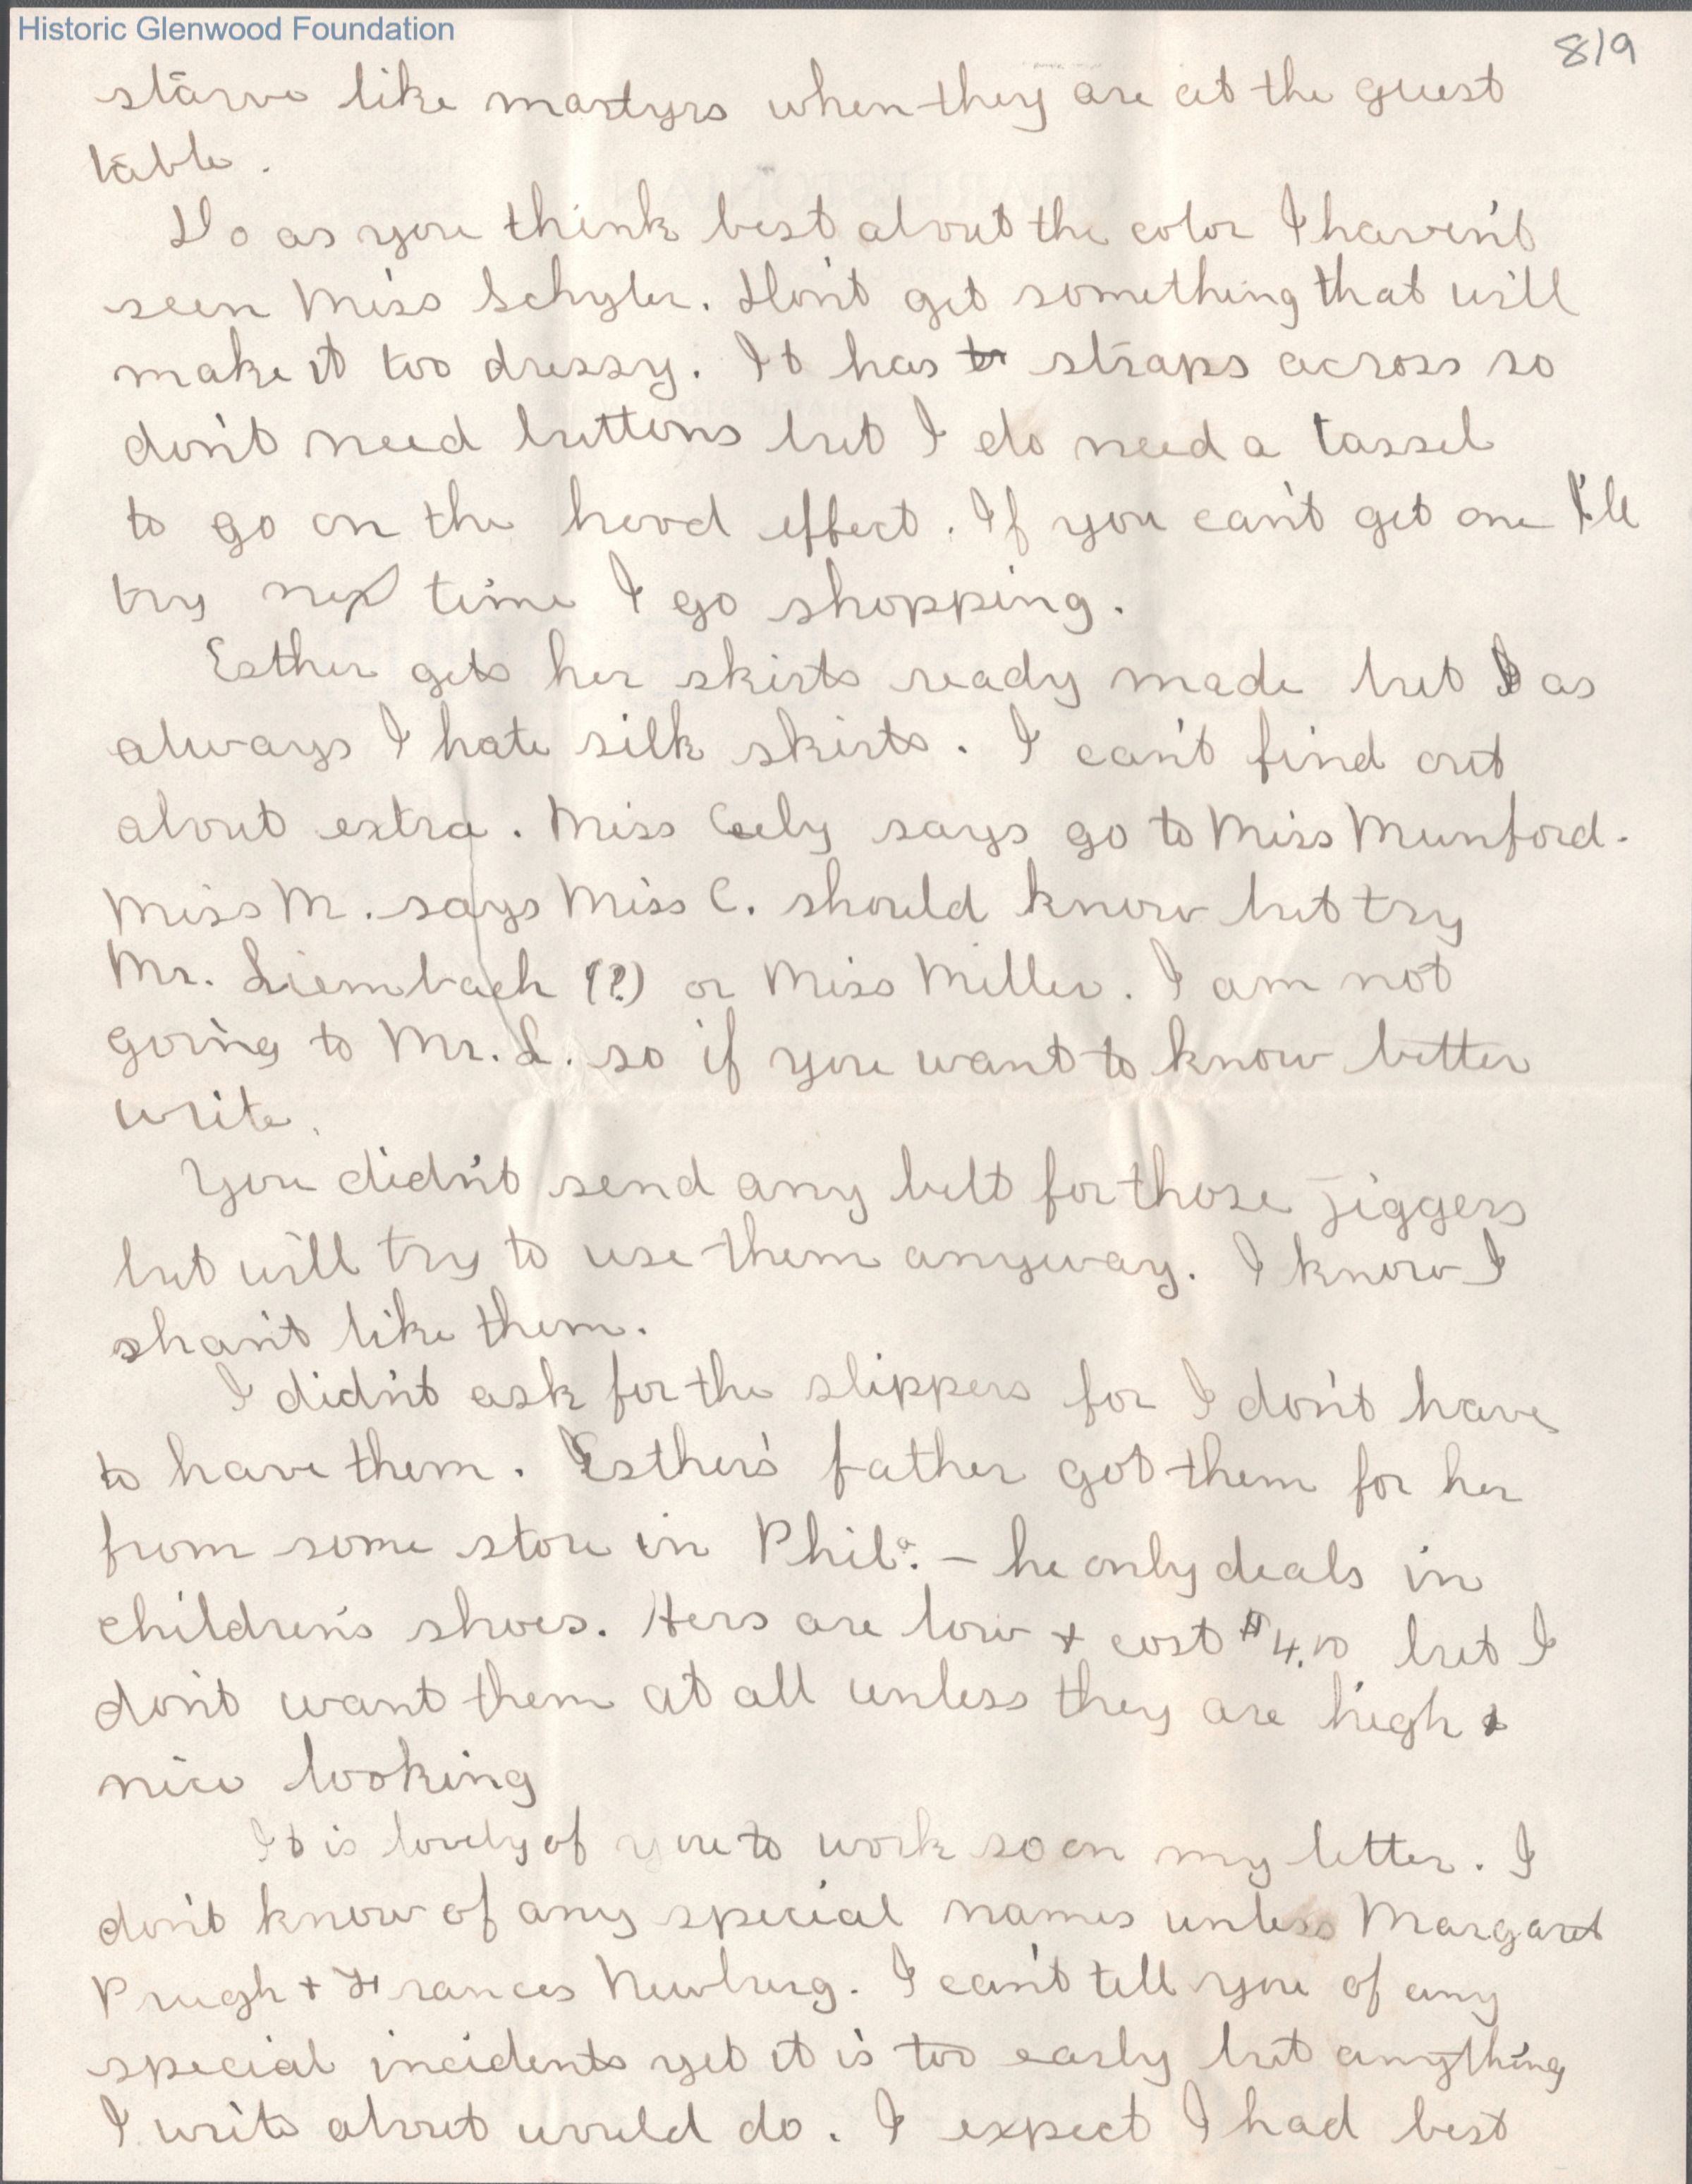 Historic Glenwood Foundation
819
starve like martyrs when they are at the guest
table.
Do as you think best about the color I haven't
seen Miss Schyler. Don't get something that will
make it too dressy. It has straps across so
don't need buttons but I do need a tassel
to go on the hood effect. If you can't get one I'll
try next time I go shopping.
Esther gets her skirts ready made but as
always I hate silk skirts. I can't find out
about extra. Miss Ceely says go to Miss Munford.
Miss M. says Miss C. should know but try
Mr. Liembach (?) or Miss Miller. I am not
going to Mr. L. so if you want to know better
write.
You didn't send any belt for those jiggers
but will try to use them anyway. I know I
shan't like them.
I didn't ask for the slippers for I don't have
to have them. Esther's father got them for her
from some store in Phila. – he only deals in
children's shoes. Hers are low + cost $4.10 but I
don't want them at all unless they are high &
nice looking
It is lovely of you to work so on my letter. I
don't know of any special names unless Margaret
Prugh + Frances Newburg. I can't tell you of any
special incidents yet it is too early but anything
I write about would do. I expect I had best